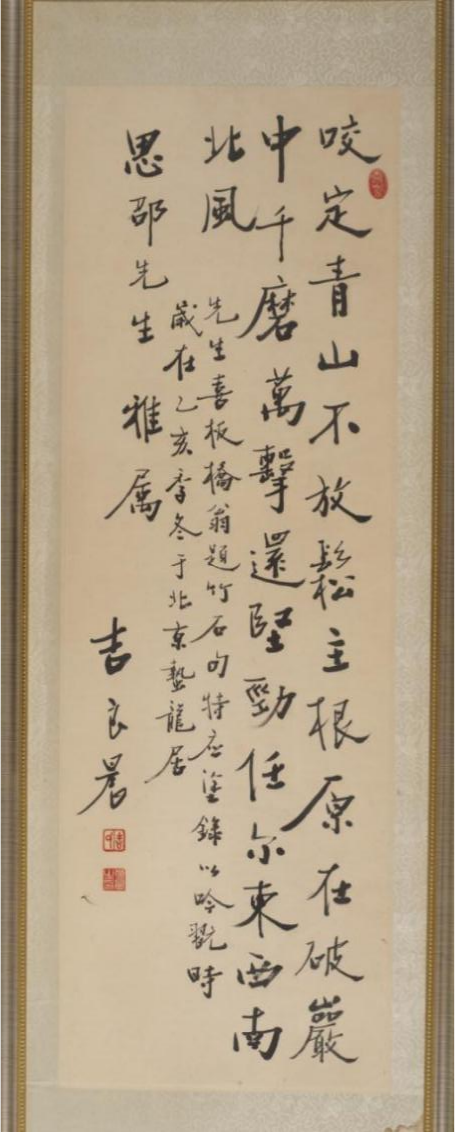 咬定青山不放鬆主根原在破巖
中千磨萬擊還堅勁任尔東西南
北風
先生喜板橋翁題竹石句特应塗錄以吟翫時
歲在乙亥季冬于北京蟄龍居
思邵先生雅屬
吉良晨